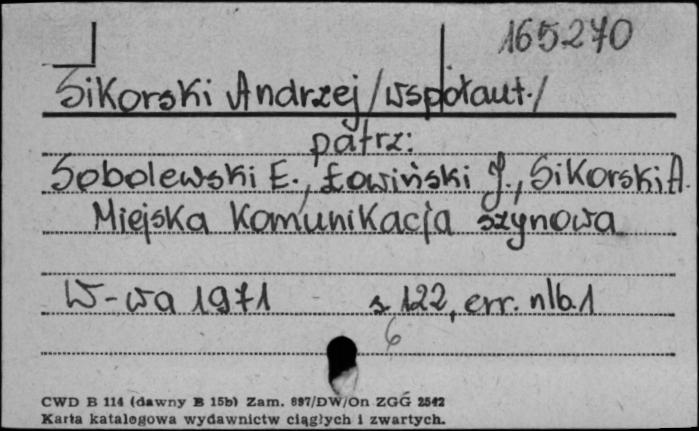 165270
Sikorski Andrzej /współaut./
patrz:
Sobolewski E., Łowiński J., Sikorski A.
Miejska Komunikacja szynowa
W-wa 1971 s 122, err. nlb. 1
6
CWD B 114 (dawny B 15b) Zam. 897/DW/On ZGG 2542
Karta katalogowa wydawnictw ciągłych i zwartych.